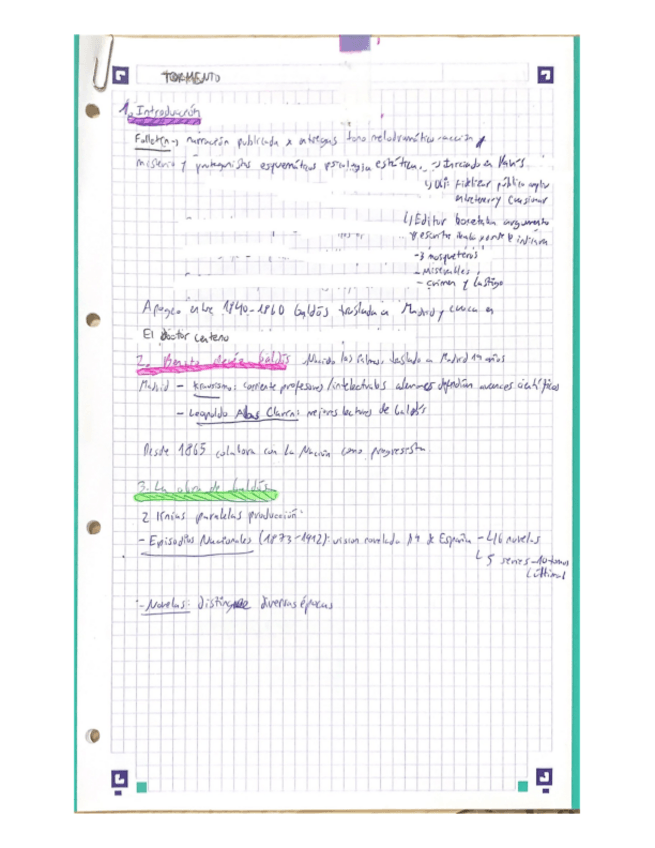 TORMENTO
1. Introducción
Folletín → narración publicada x entregas tono melodramático-acción
misterio y protagonistas esquemáticos psicología estática. → Iniciado en París
fidelizar público
entretener y
Editor
- 3 mosqueteros
- Miserables
- crimen y castigo
Apogeo entre 1840-1860 Galdós traslada a Madrid y
El doctor centeno
2. Benito Pérez Galdós Nacido las Palmas, traslado a Madrid 19 años
Madrid - Krausismo: corriente profesores/intelectuales alemanes defendían avances científicos
- Leopoldo Alas Clarín: mejores lectores de Galdós
Desde 1865 colabora con La Nación como progresista
3. La obra de Galdós
2 líneas paralelas producción:
- Episodios Nacionales (1873-1912): visión novelada Hª de España - 46 novelas
5 series - 10 tomos
- Novelas: distingue diversas épocas